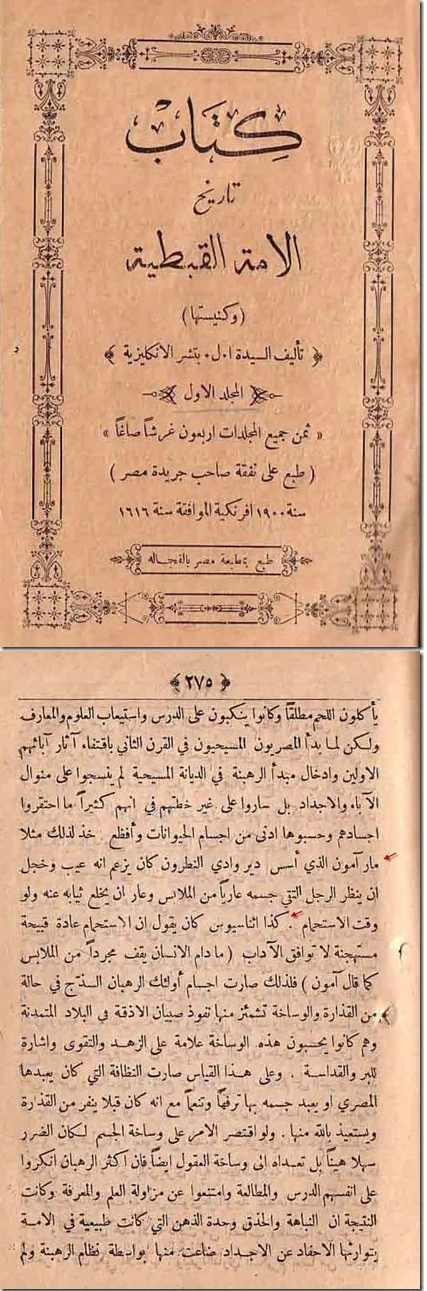 كتاب
تاريخ
الامة القبطية
(وكنيستها)
﴿ تأليف السيدة ا٠ل٠ بتشر الانكليزية ﴾
المجلد الاول
« ثمن جميع المجلدات اربعون غرشاً صاغاً »
( طبع على نفقة صاحب جريدة مصر )
سنة ١٩٠٠ افرنكية الموافقة سنة ١٦١٦
طبع بمطبعة مصر بالفجاله
﴿ ٢٧٥ ﴾
يأكلون اللحم مطلقاً وكانوا ينكبون على الدرس واستيعاب العلوم والمعارف
ولكن لما بدأ المصريون المسيحيون في القرن الثاني باقتفاء آثار آبائهم
الاولين وادخال مبدأ الرهبنة في الديانة المسيحية لم ينسجوا على منوال
الآباء والاجداد بل ساروا على غير خطتهم في انهم كثيراً ما احتقروا
اجسادهم وحسبوها ادنى من اجسام الحيوانات وأفظع . خذ لذلك مثلا
مار آمون الذي أسس دير وادي النطرون كان يزعم انه عيب وخجل
ان ينظر الرجل التقي جسمه عارياً من الملابس وعار ان يخلع ثيابه عنه ولو
وقت الاستحمام . كذا اثناسيوس كان يقول ان الاستحمام عادة قبيحة
مستهجنة لا توافق الآداب ( ما دام الانسان يقف مجرداً من الملابس
كما قال آمون ) فلذلك صارت اجسام أولئك الرهبان السذّج في حالة
من القذارة والوساخة تشمئز منها نفوذ صبيان الاذقة في البلاد المتمدنة
وهم كانوا يحسبون هذه الوساخة علامة على الزهد والتقوى واشارة
للبر والقداسة . وعلى هذا القياس صارت النظافة التي كان يعبدها
المصري او يعبد جسمه بها ترفهاً وتنعماً مع انه كان قبلا ينفر من القذارة
ويستعيذ بالله منها . ولو اقتصر الامر على وساخة الجسم لكان الضرر
سهلا هيناً بل تعداه الى وساخة العقول ايضاً فان اكثر الرهبان انكروا
على انفسهم الدرس والمطالعة وامتنعوا عن مزاولة العلم والمعرفة وكانت
النتيجة ان النباهة والحذق وحدة الذهن التي كانت طبيعية في الامة
يتوارثها الاحفاد عن الاجداد ضاعت منها بواسطة نظام الرهبنة ولم